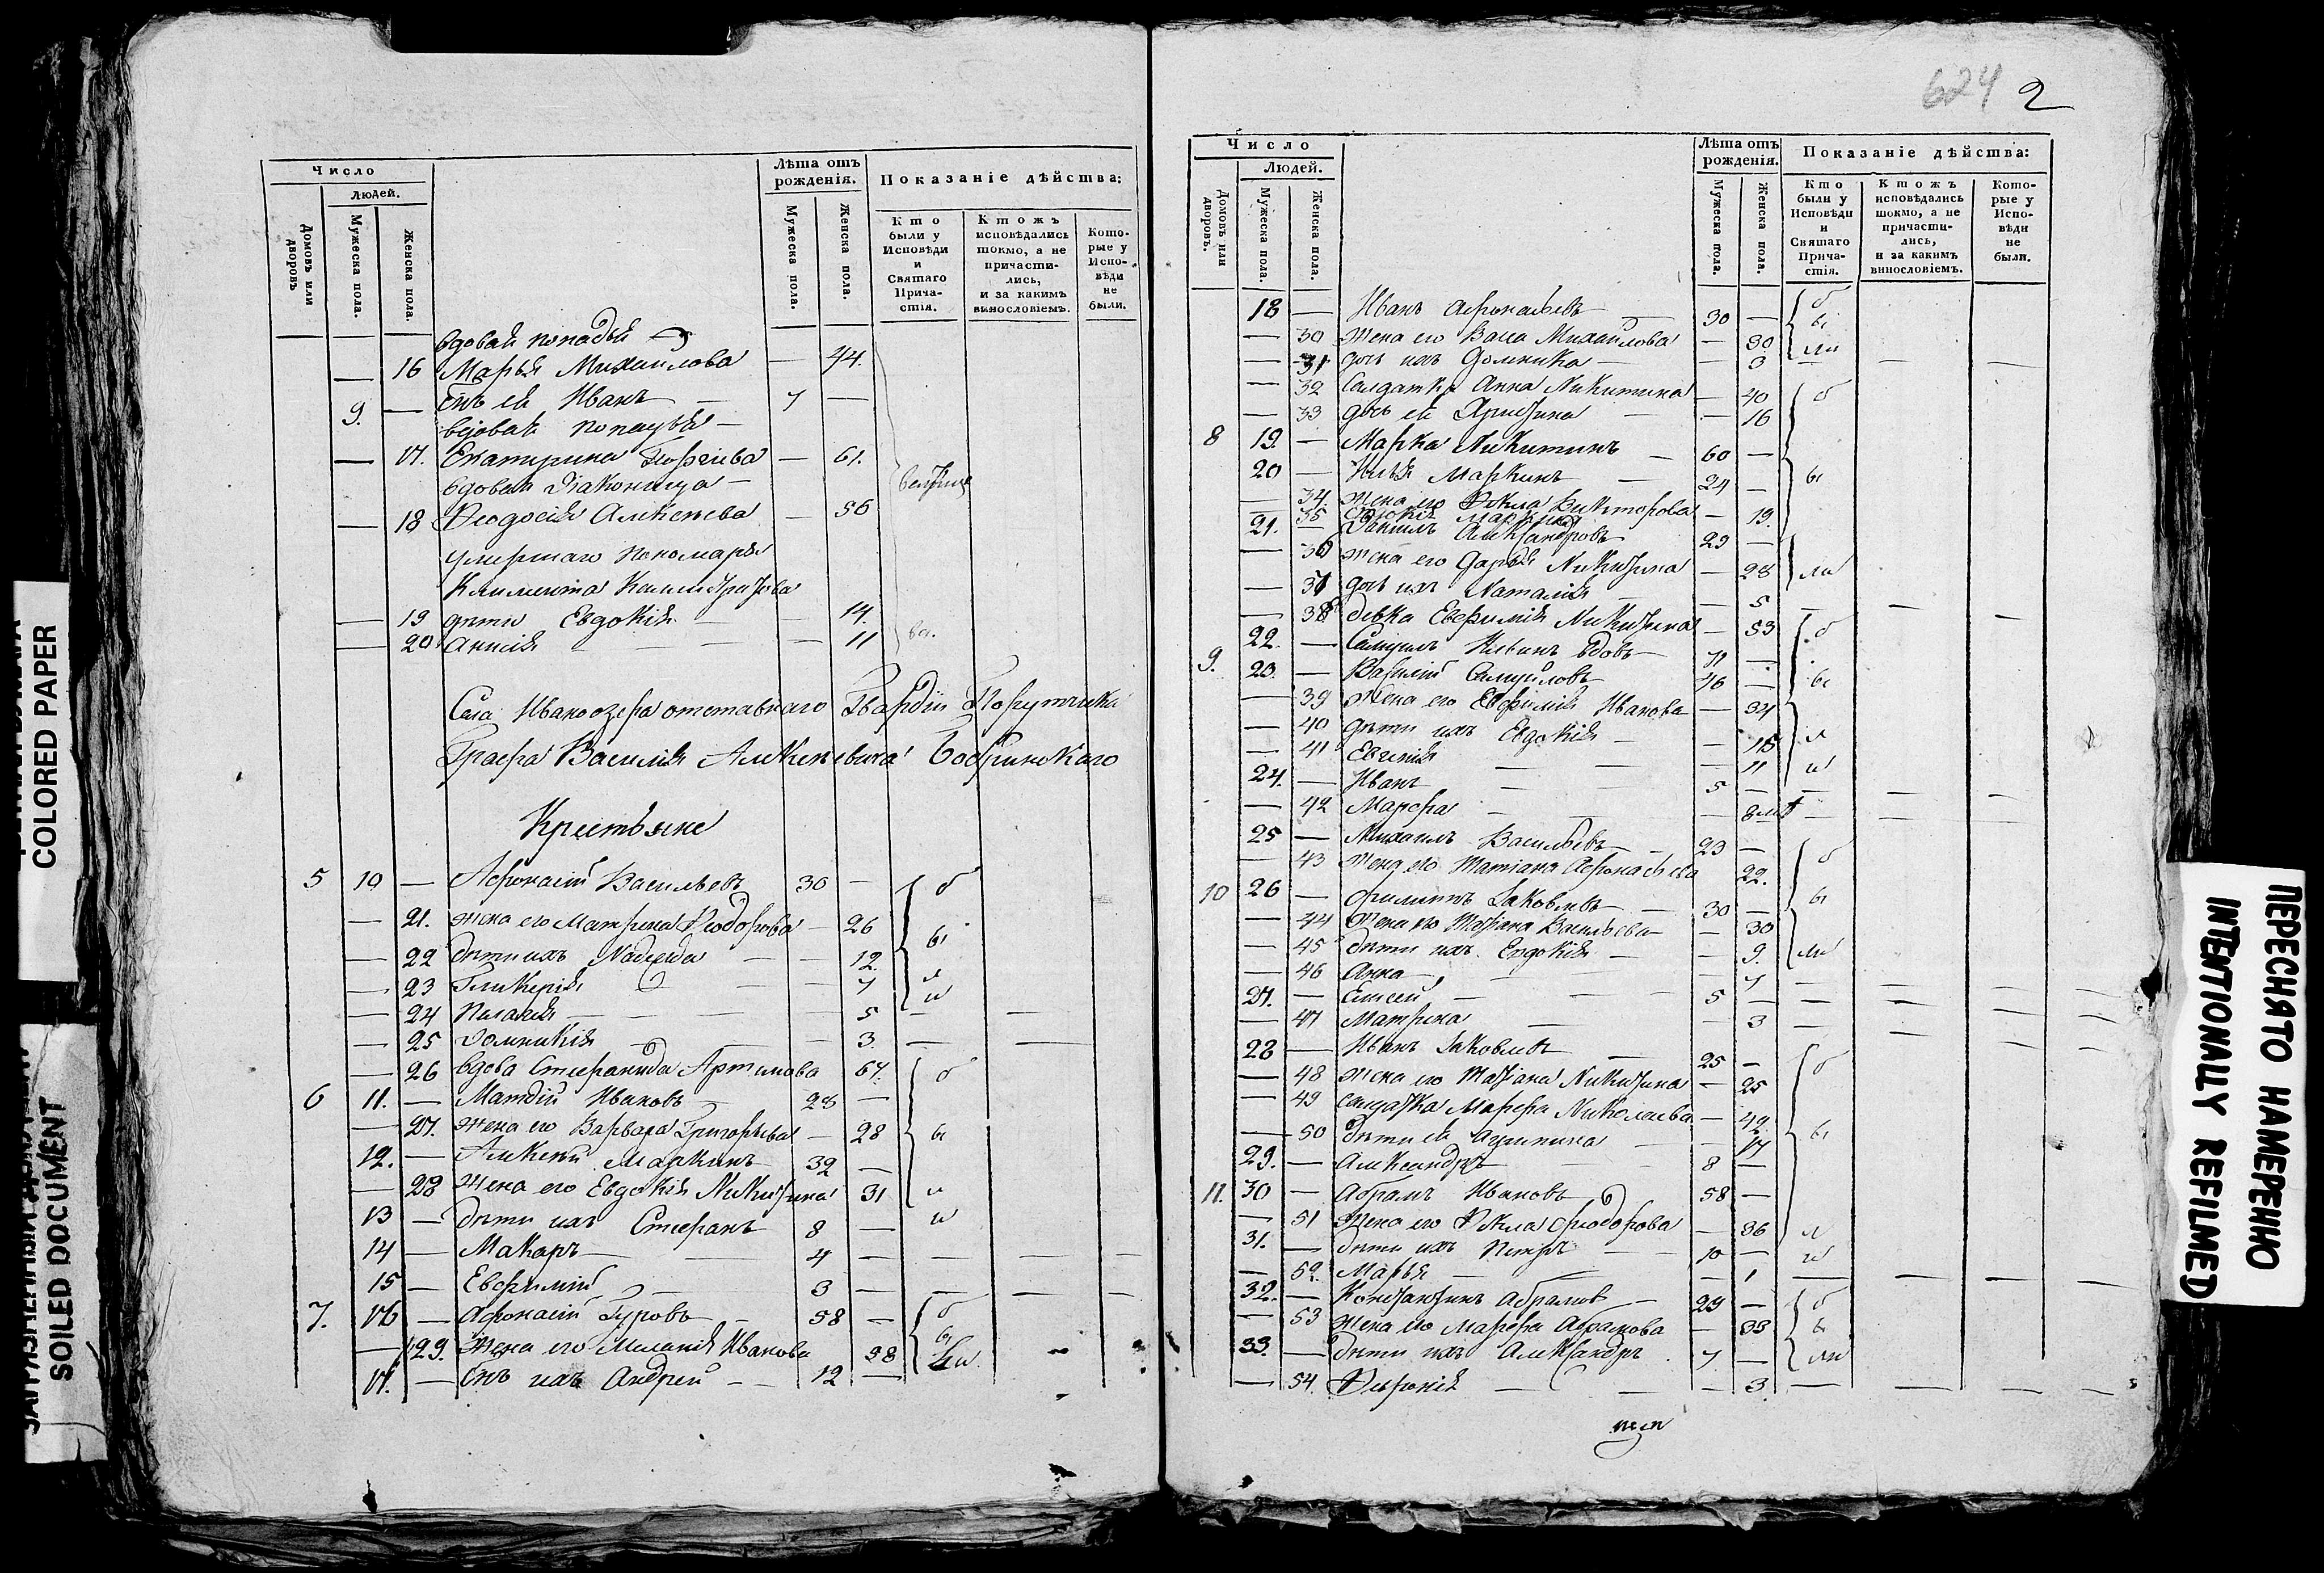 624 2
Число
Людей.
Домовъ или дворовъ
Мужеска пола.
Женска пола.
Лѣта отъ рожденія.
Мужеска пола.
Женска пола.
Показаніе дѣйства:
Кто были у Исповѣди и Святаго Прича-стія.
Ктожъ исповѣдались токмо, а не причасти-лись, и за какимъ винословіемъ.
Кото-рые у Испо-вѣди не были.
вдовая попадья
— 16 Марья Михаилова — 44.
9. — Снъ ея Иванъ — 7 —
вдовая попадья —
— 17. Екатерина — 61.
вдовая Діаконица —
— 18 Ѳеодосія Алексѣева — 56
умершаго пономаря
Климента
— 19 дѣти Евдокія — 14.
— 20 Анисія — — 11
Села Иваноозера отставнаго Гвардіи Порутчика
Графа Василія Алексѣевича Бобринскаго
Крестьяне
5 10 — Афонасій Васильевъ 30 — б
— 21. жена его Матрена Ѳеодорова — 26
— 22 дѣти ихъ Надежда — — 12. бы
— 23 Гликерія — — 7 л
— 24 Пелагія — — 5 — —
— 25 Домникія — — 3. — —
— 26 вдова Стефанида Артамова 67. б
6 11. — Матфій Ивановъ — 28 —
— 27. жена его Варвара Григорьева — 28 бы
12. — Алексѣй Маркинъ 32 —
— 28 жена его Евдокія Никитина 31 л
13 — дѣти ихъ Стефанъ 8 — и
14 — Макаръ — 4 — — — —
15 — Евфимій — 3 — — — —
7. 16 — Афонасій Гуровъ — 58 — б
— 29. жена его Меланія Иванова 58 бы
17. — Снъ ихъ Андрей — — 12 — ли
Число
Людей.
Домовъ или дворовъ.
Мужеска пола.
Женска пола.
Лѣта отъ рожденія.
Мужеска пола.
Женска пола.
Показаніе дѣйства:
Кто были у Исповѣди и Святаго Прича-стія.
Ктожъ исповѣдались токмо, а не причасти-лись, и за какимъ винословіемъ.
Кото-рые у Испо-вѣди не были.
18 — Иванъ Афонасьевъ — 30 — б
— 30 жена его Васса Михаилова — 30 бы
— 31 дочь ихъ Домника — — 3 — — —
— 32 Салдатка Анна Никитина — 40 б
— 33 дочь ея — — 16
8 19. — Марка Никитинъ — 60 —
20 — Илья Маркинъ — 24 — бы
— 34. жена его Ѳекла Викторова — 19.
— 35 Маркина
21. — Даниилъ Александровъ 29 —
— 36 жена его Дарья Никитина — 28 ли
— 37 дочь ихъ Наталія — — 5 — — —
— 38 девка Евфимія Никитина — 53 б
22. — Самуилъ вдовъ 71 —
9. 23. — Василій Самуиловъ 46 — бы
— 39 жена его Евфимія Иванова — 34
— 40 дѣти ихъ Евдокія — — 15 л
— 41 Евгенія — — — 11 и
24. — Иванъ — — 5 — — — —
— 42 Марфа — — — — — —
25 — Михаилъ Васильевъ — 23 —
— 43 жена его Татіана Афонасьева 22. б
10 26 — Филиппъ Іаковлевъ — 30 — бы
— 44 жена его Татіана Васильева — — 30
— 45 дѣти ихъ Евдокія — — 9. ли
— 46 Анна — — — 7 — — —
27. — Елисей — — 5 — — — —
— 47 Матрена — — 3 — — —
28 — Иванъ Іаковлевъ — 25 — б
— 48 жена его Татіана Никитина — 25
— 49 салдатка Марфа Николаева — 42.
— 50 дѣти ея Агрипина — — 17 бы
29. — Александръ — 8 —
11. 30 — Абрамъ Ивановъ 58 —
— 51 жена его Ѳекла Ѳеодорова — 36 л
31. — дѣти ихъ Петръ — — 10 — и
— 52. Марья — — 1 — — — —
32. — Константинъ Абрамовъ — 29 — б
— 53 жена его Марфа Абрамова — 33 бы
33. — дѣти ихъ Александръ 7 — ли
— 54. — — — 3. — — — —
COLORED PAPER
SOILED DOCUMENT
ПЕРЕСНЯТО НАМЕРЕННО
INTENTIONALLY REFILMED